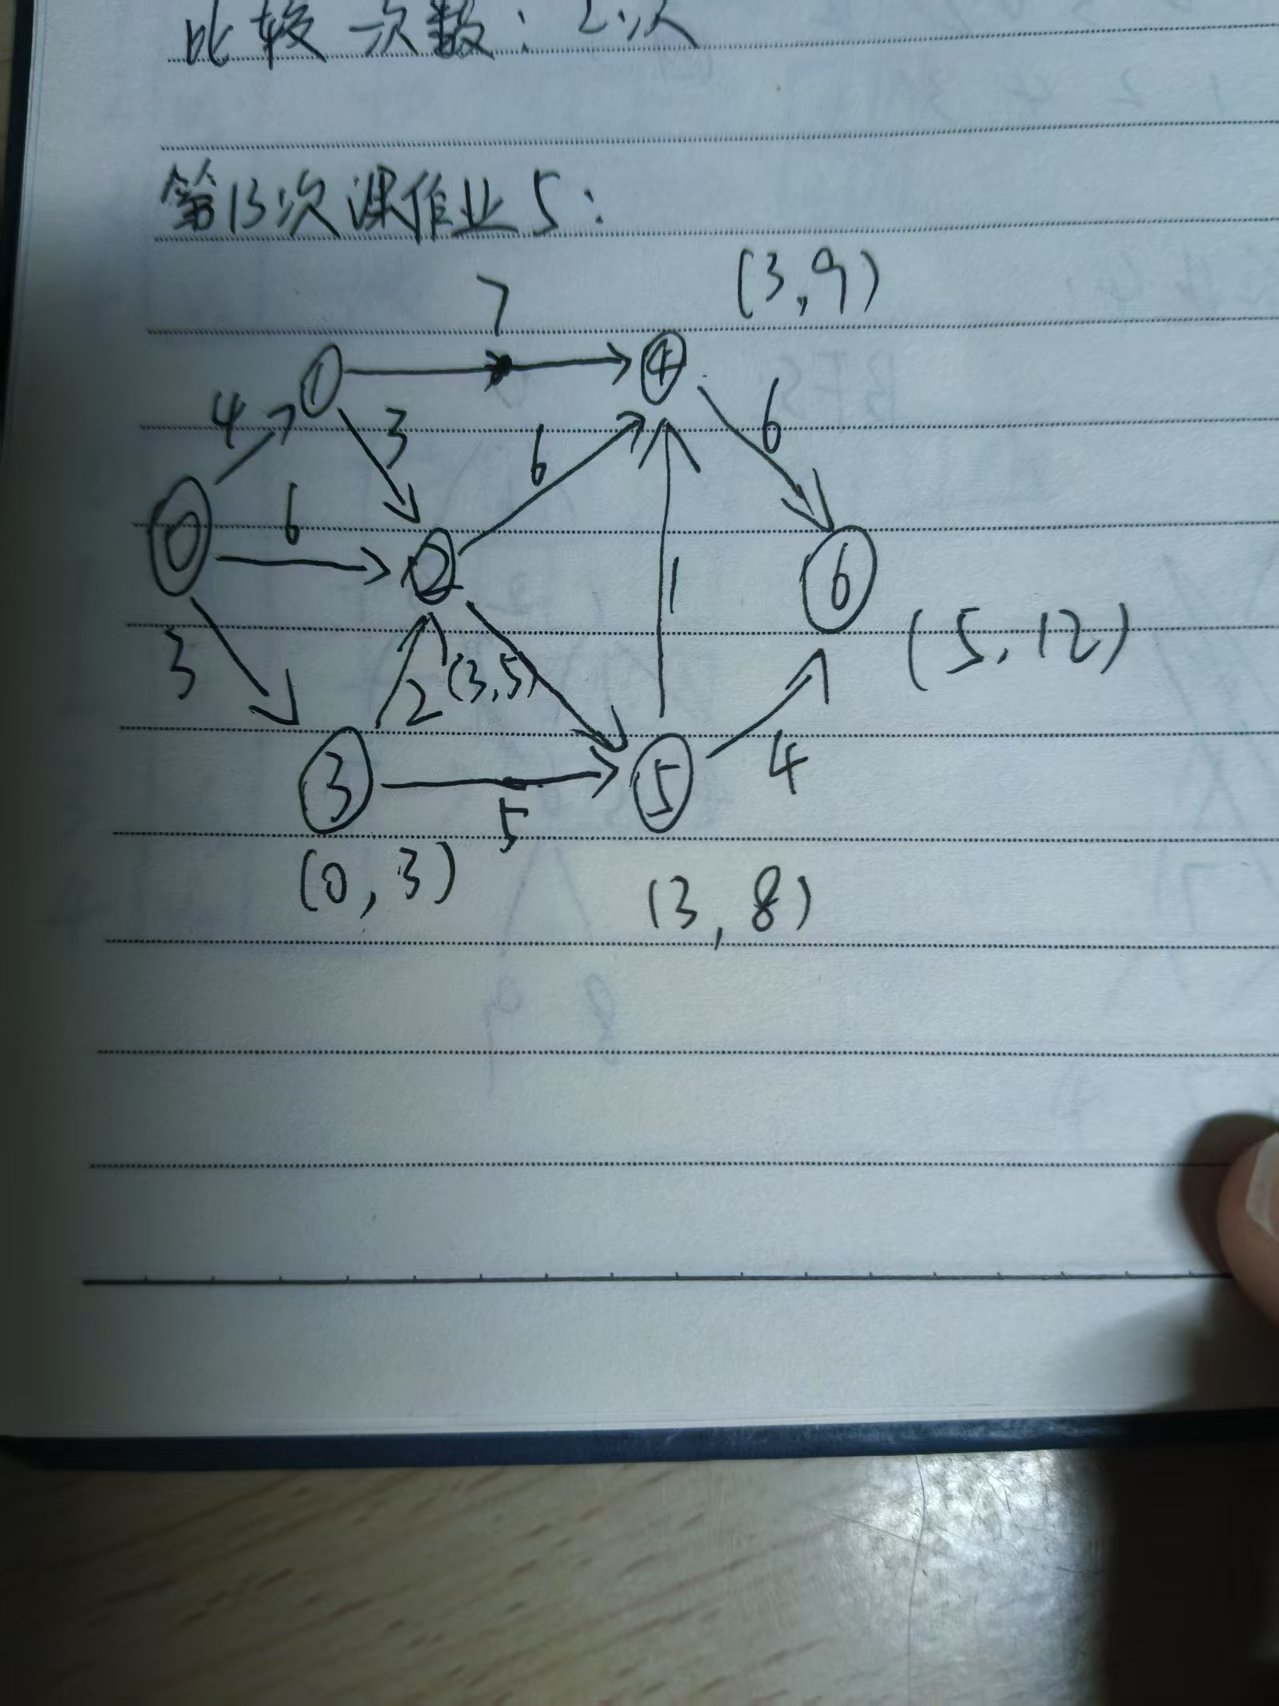 比较次数：2次
第13次课作业5：
(3,9)
7
1
4
4
3
6
6
0
6
2
1
6
3
2
(3,5)
(5,12)
3
5
4
5
(0,3)
(3,8)